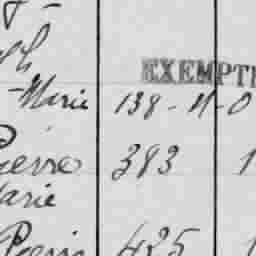 EXEMPT
-Marie 138-N-O
Pierre 383 1
Marie
Pierre 425 1